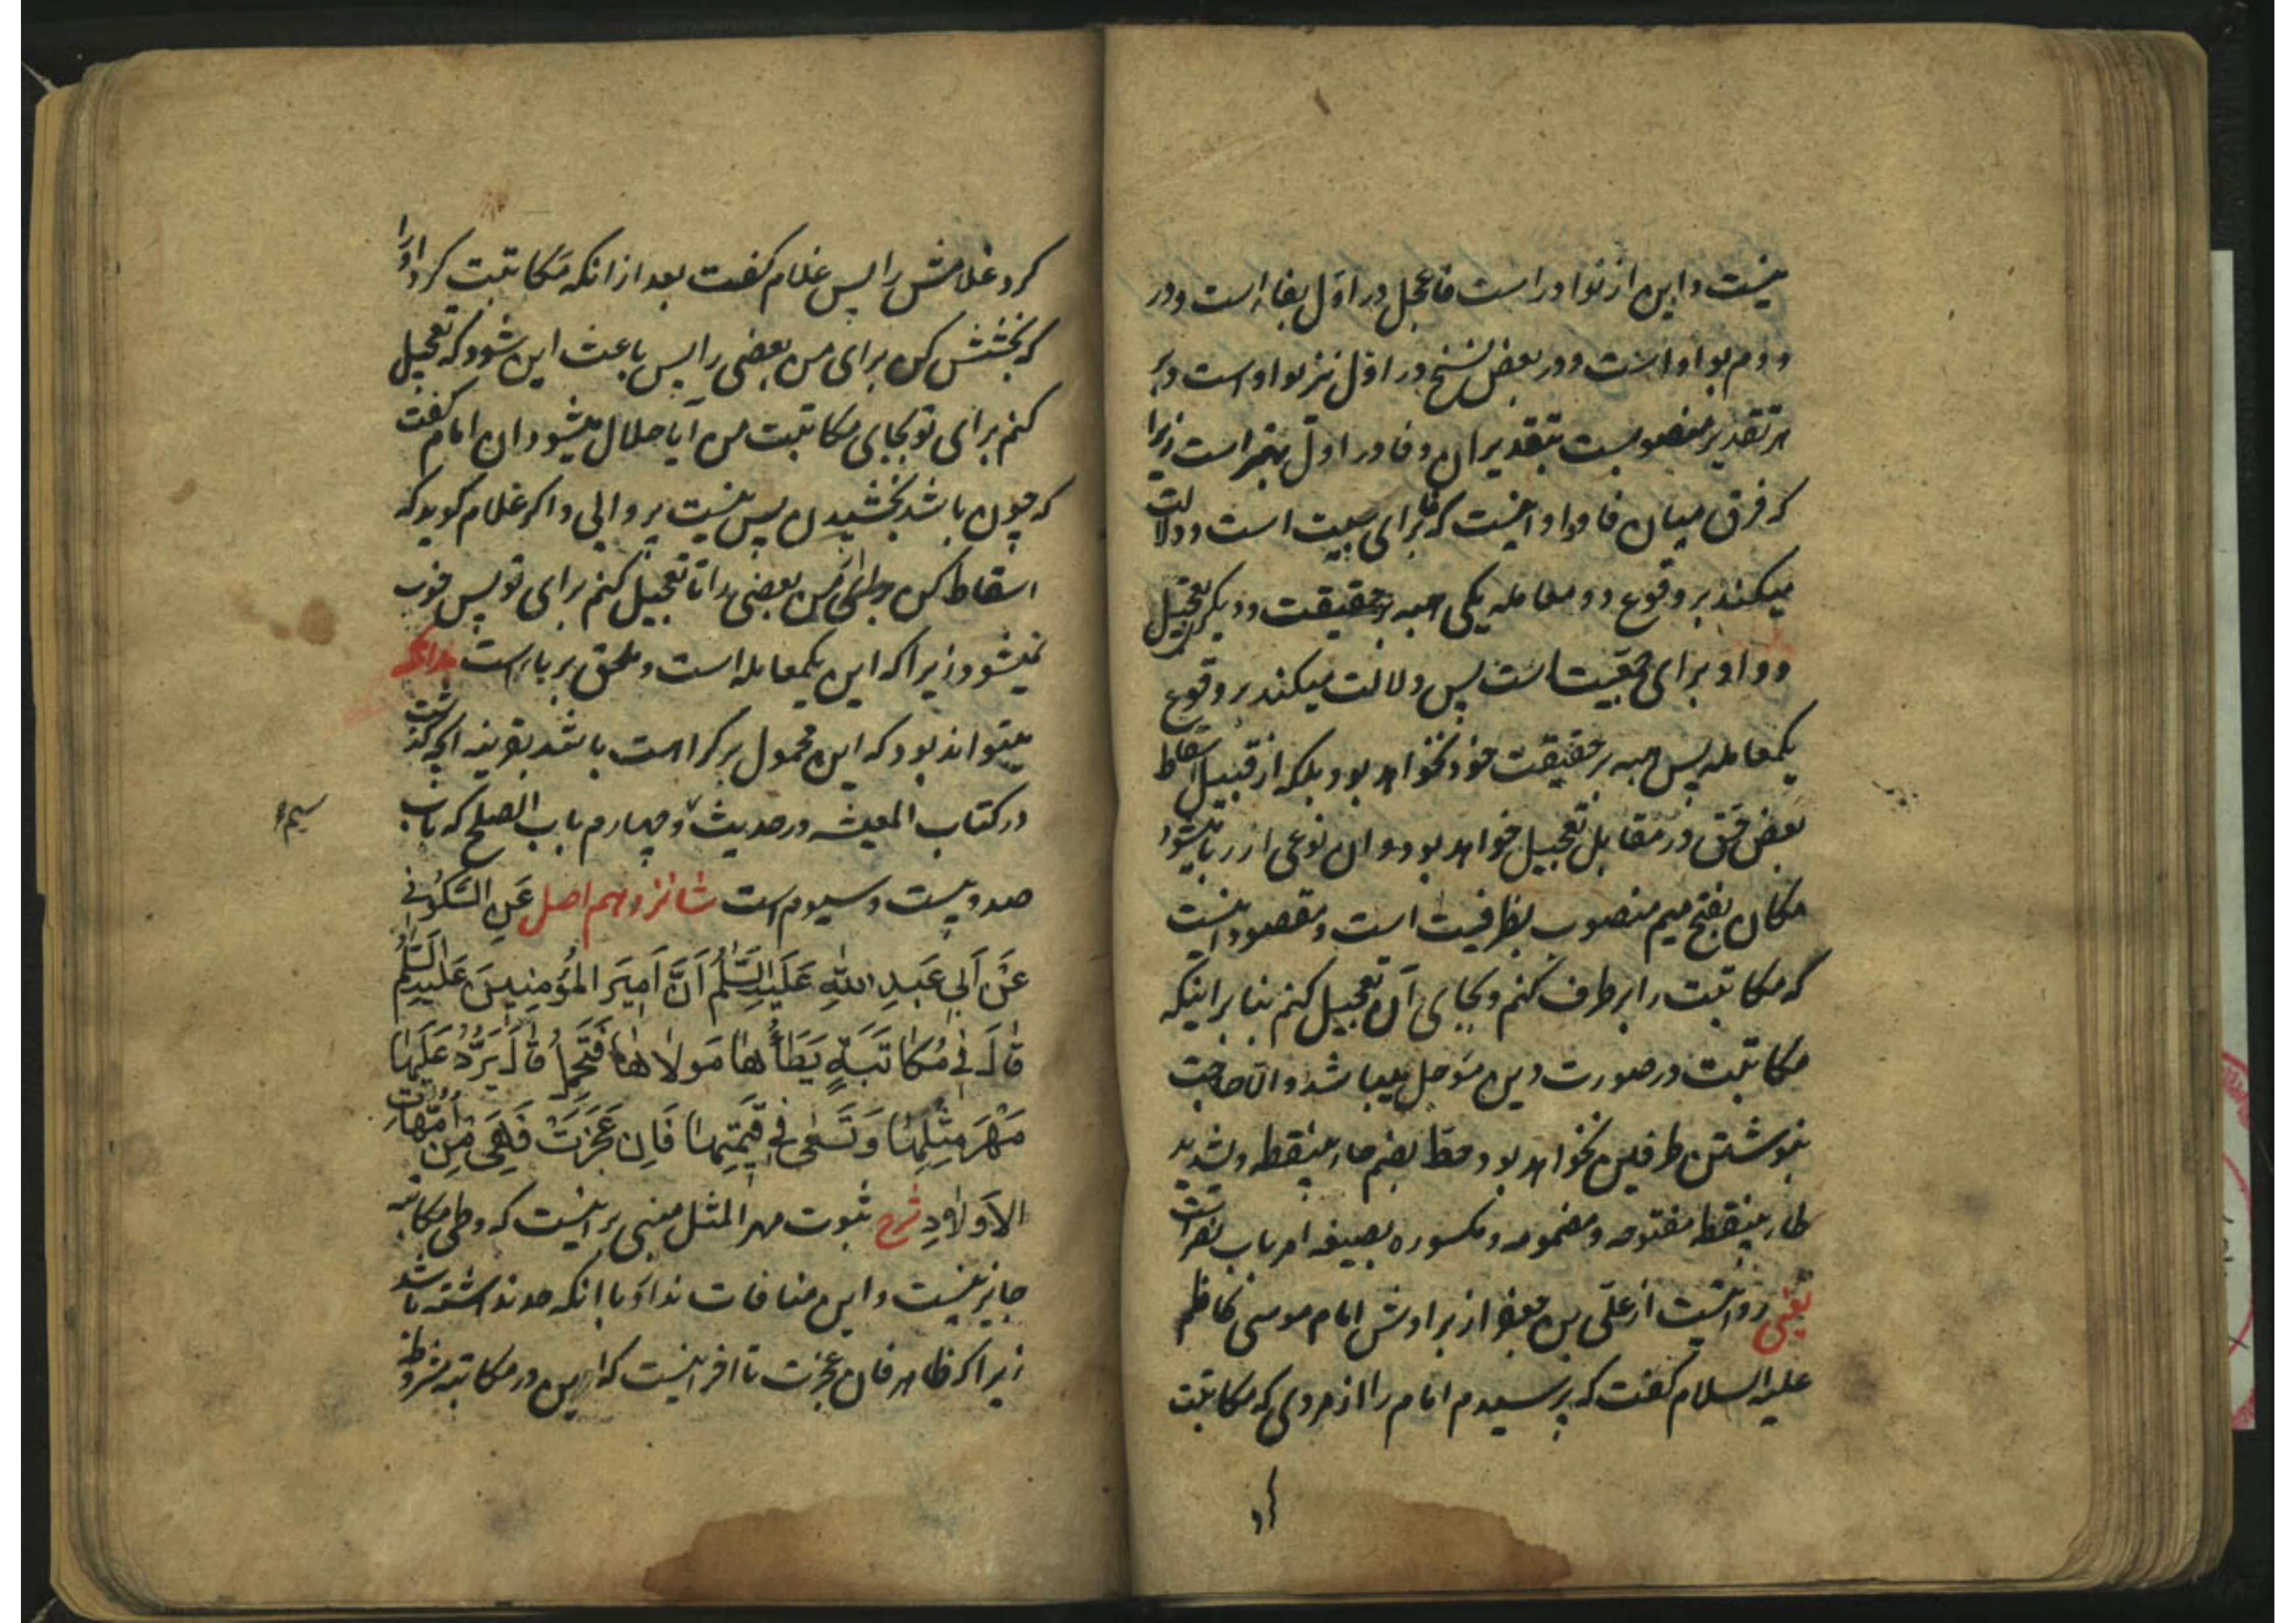 نیست و این از نوادر است فاعجل در اول بفاء است و در
دوم بواو است و در بعض نسخ در اول نیز بواو است و بر
هر تقدیر منصوبست بتقدیر ان و فا در اول بهتر است زیرا
که فرق میان فا و واو اینست که فا برای سببیت است و دلالت
میکند بر وقوع دو معامله یکی هبه بر حقیقت و دیگر تعجیل
و واو برای معیت است پس دلالت میکند بر وقوع
یکمعامله پس هبه بر حقیقت خود نخواهد بود بلکه از قبیل اسقاط
بعض حق در مقابل تعجیل خواهد بود و ان نوعی از ربا میشود
مکان بفتح میم منصوب بظرفیت است و مقصود اینست
که مکاتبت را برطرف کنم و بجای آن تعجیل کنم بنا بر اینکه
مکاتبت در صورت دین مؤجل میباشد و الا حاجت
بنوشتن طرفین نخواهد بود حط بضم حاء بینقطه و تشدید
طاء بینقطه مفتوحه و مضمومه و مکسوره بصیغه امر باب نصر است
یعنی روایتست از علی بن جعفر از برادرش امام موسی کاظم
علیه السلام گفت که پرسیدم امام را از مردی که مکاتبت
کرد
کرد غلامش را پس غلام گفت بعد از انکه مکاتبت کرد او را
که بخشش کن برای من بعضی را پس باعث این شود که تعجیل
کنم برای تو بجای مکاتبت من آیا حلال میشود ان امام گفت
که چون باشد بخشیدن پس نیست پروایی و اکر غلام کوید که
اسقاط کن برای من بعضی را تا تعجیل کنم برای تو پس خوب
نمیشود زیرا که این یکمعامله است و ملحق بربا است
میتواند بود که این محمول بر کراهت باشد بقرینه انچه گذشت
در کتاب المعیشه در حدیث چهارم باب الصلح که باب
صد و بیست و سیوم است شانزدهم اصل عَنِ السَّکُونی
عَنْ اَبی عَبدِ اللّٰهِ عَلَیهِ السَّلٰمُ اَنَّ اَمیرَ المُؤمِنینَ عَلَیهِ السَّلٰمُ
قٰالَ فی مُکٰاتَبَةٍ یَطَأُهٰا مَولاهٰا فَتَحمِلُ قٰالَ یَرُدُّ عَلَیهٰا
مَهْرَ مِثلِهٰا وَ تَسعٰی فی قیمَتِهٰا فَاِن عَجَزَتْ فَهِیَ مِن اُمَّهٰاتِ
الاَولٰادِ شرح ثبوت مهر المثل مبنی بر اینست که وطی مکاتبه
جایز نیست و این منافات ندارد با انکه حد نداشته باشد
زیرا که ظاهر فان عجزت تا اخر اینست که این در مکاتبه مشروطه